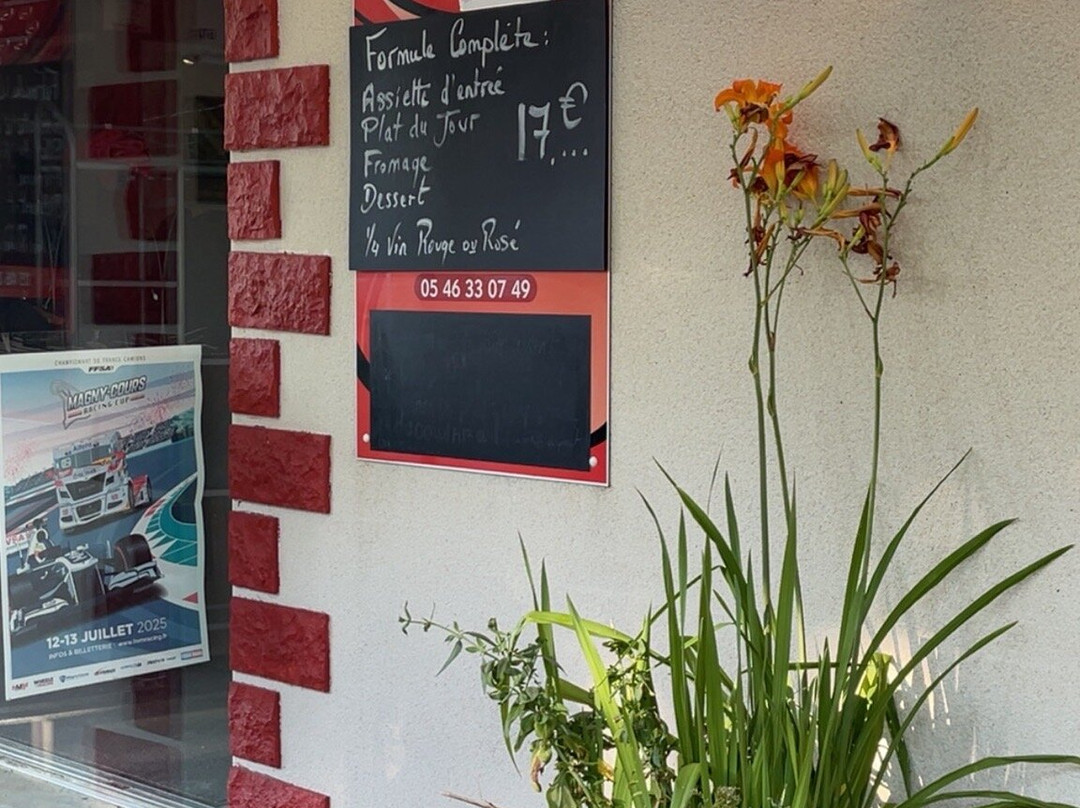 Formule Complète:
Assiette d'entrée
Plat du Jour
17,...€
Fromage
Dessert
1/4 Vin Rouge ou Rosé
05 46 33 07 49
CHAMPIONNAT DE FRANCE CAMIONS
FFSA
MAGNY-COURS
RACING CUP
12-13 JUILLET 2025
INFOS & BILLETTERIE : www.bmracing.fr